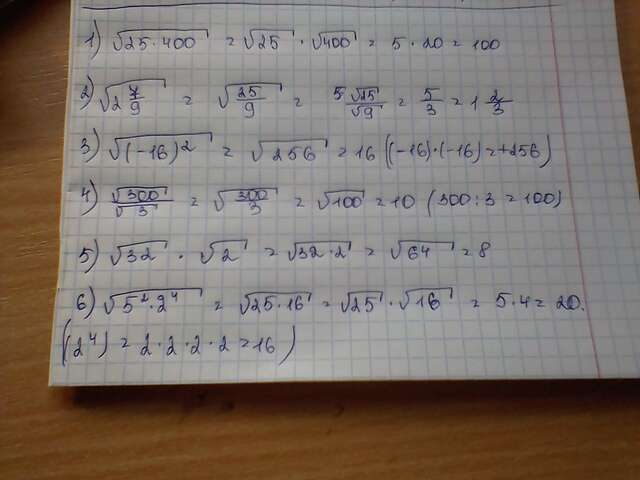 1) √25·400 = √25 · √400 = 5 · 20 = 100
2) √2 7/9 = √25/9 = √25/√9 = 5/3 = 1 2/3
3) √(-16)² = √256 = 16 ((-16)·(-16) = +256)
4) √300/√3 = √300/3 = √100 = 10 (300:3 = 100)
5) √32 · √2 = √32·2 = √64 = 8
6) √5²·2⁴ = √25·16 = √25 · √16 = 5·4 = 20.
((2⁴) = 2·2·2·2 = 16)